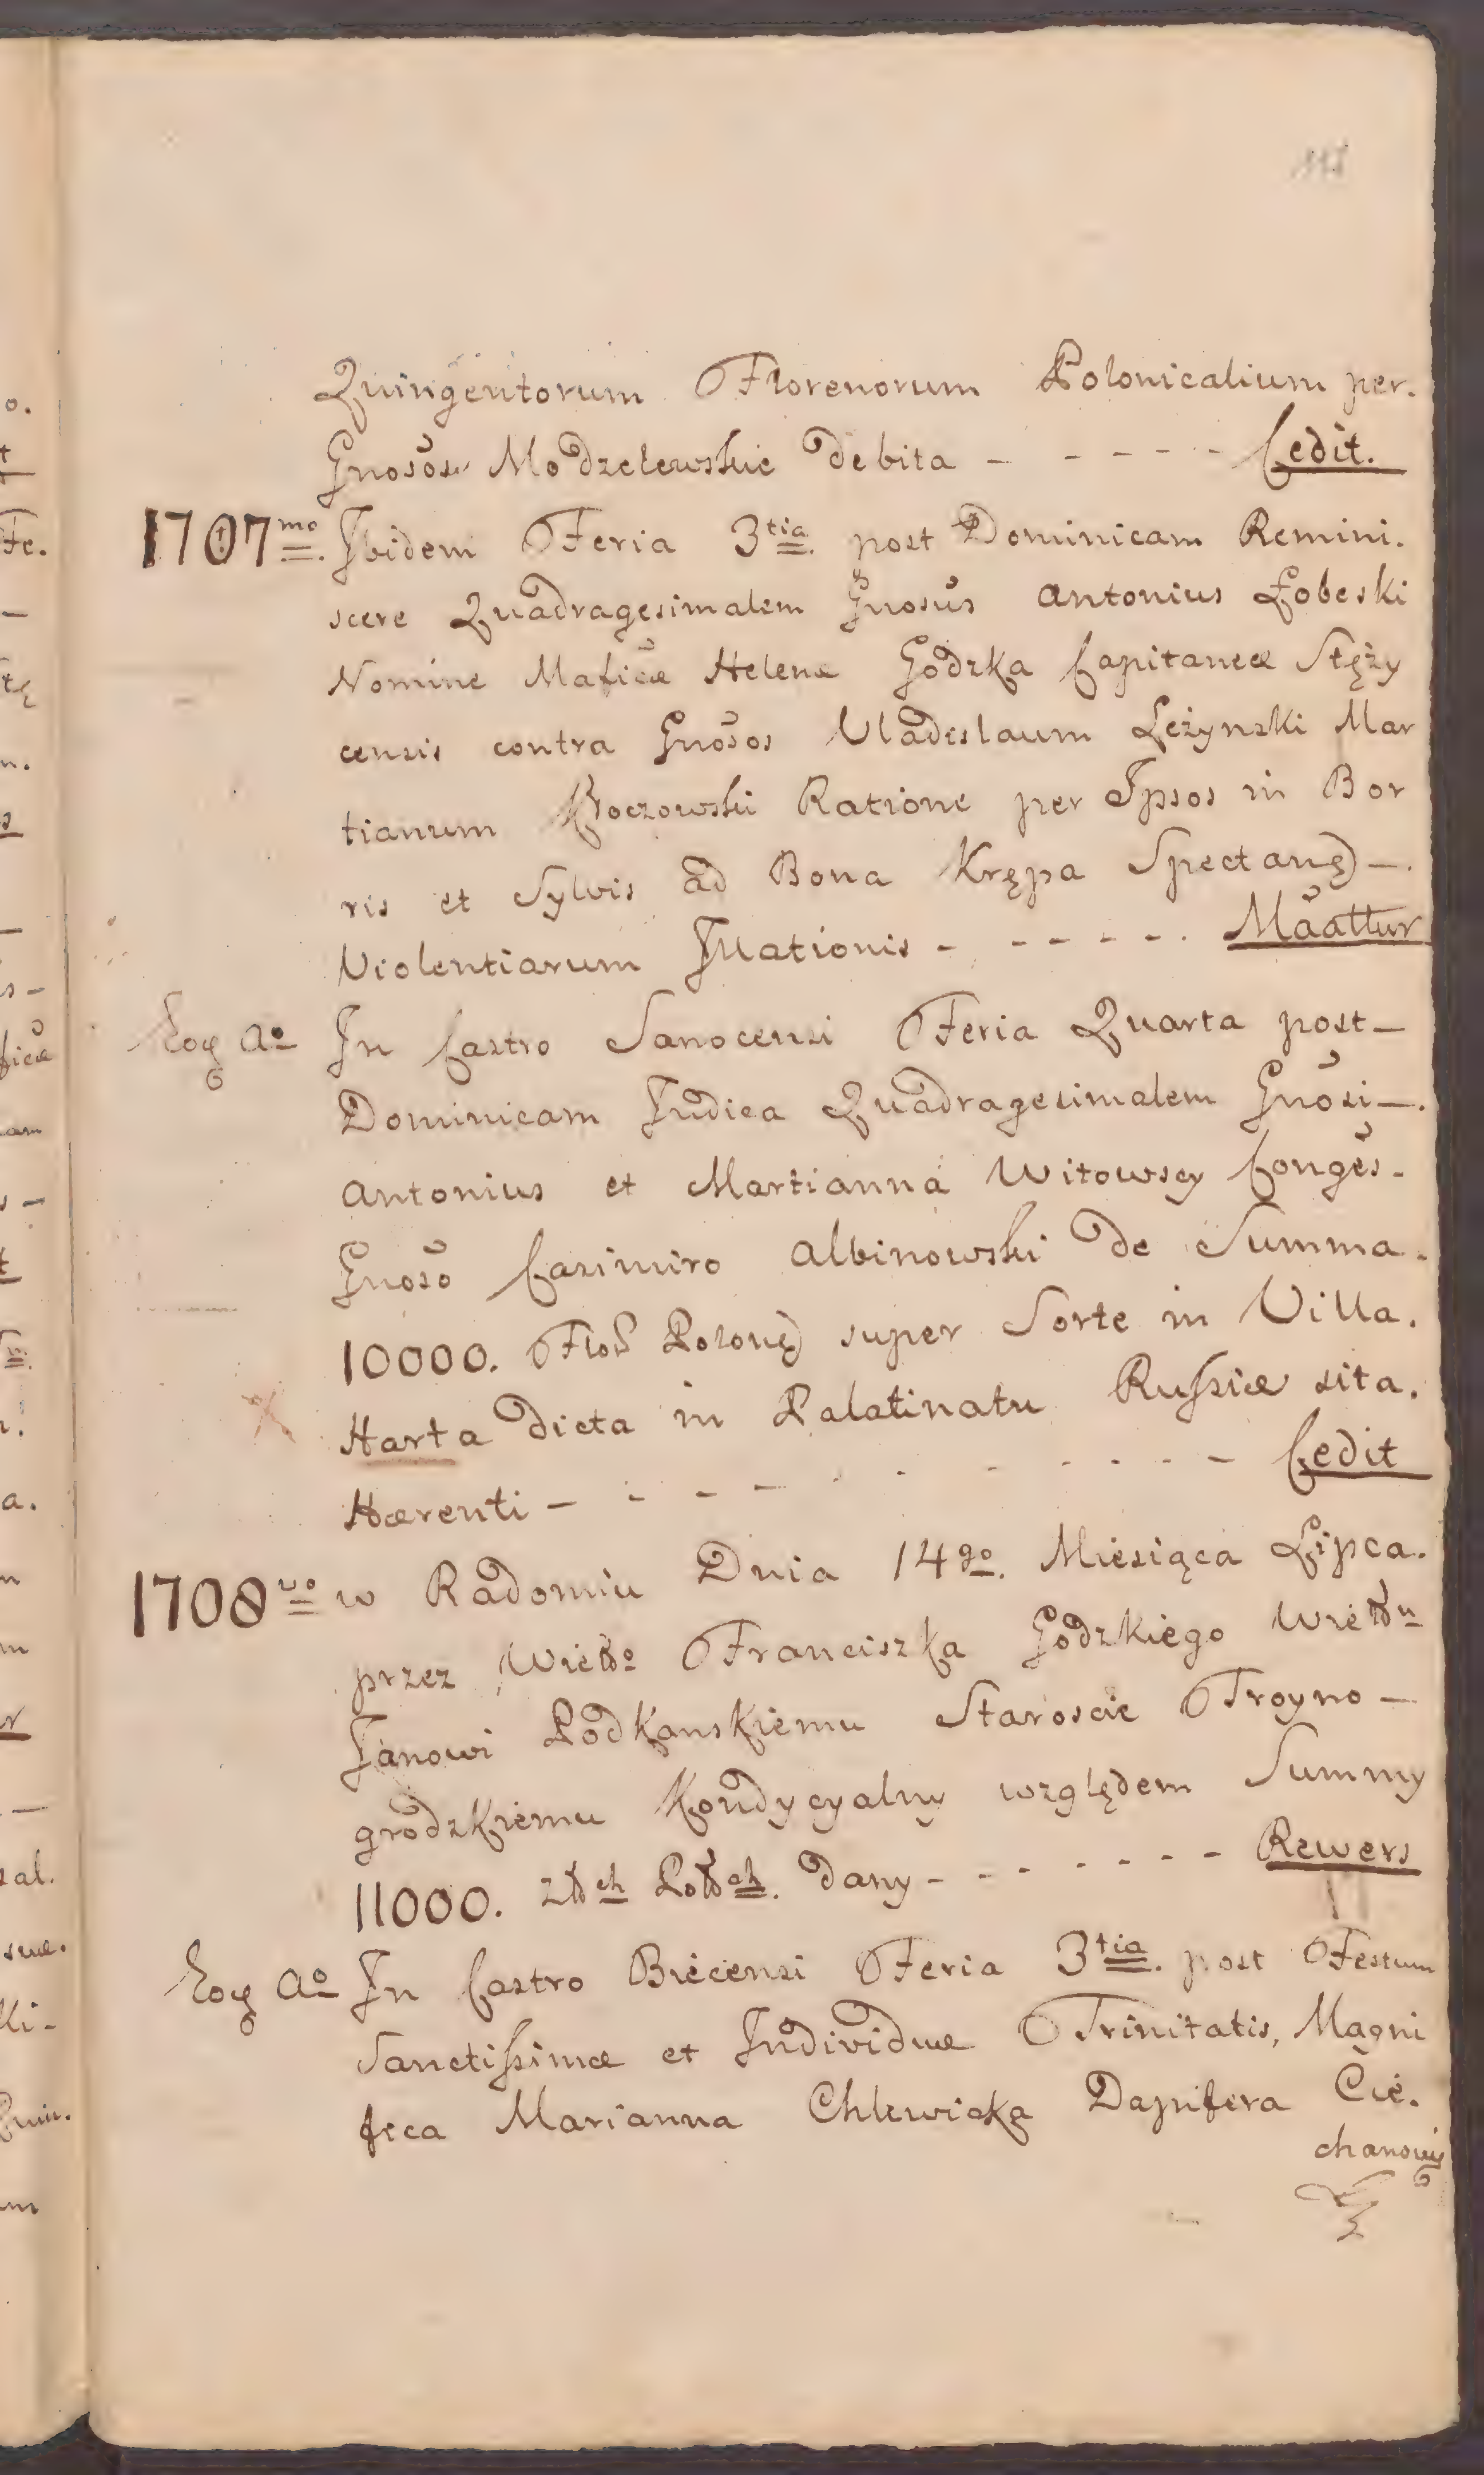 Quingentorum Florenorum Polonicalium per.
Gnosos Modzelewskie debita - - - - - - Cedit.
1707mo. Ibidem Feria 3tia. post Dominicam Remini.
scere Quadragesimalem Gnosus Antonius Łobeski
Nomine Maficæ Helenæ Godzka Capitaneæ Stęży
censis contra Gnosos Vladislaum Leżynski Mar
tianum Kroczowski Ratione per Ipsos in Bor
ris et Sylvis ad Bona Krępa Spectanę) -.
Violentiarum Illationis - - - - - -. Maattur
Eoq Ao In Castro Sanocensi Feria Quarta post -
Dominicam Iudica Quadragesimalem Gnosi -.
Antonius et Martianna Witowscy Conges -
Gnoso Casimiro Albinowski de Summa.
10000. Flor Polonę) super Sorte in Villa.
Harta dicta in Palatinatu Russiæ sita.
Hærenti - - - - - - - - - - Cedit
1708vo w Radomiu Dnia 14go. Miesiąca Lipca.
przez Wielo Franciszka Godzkiego Wielu
Janowi Podkanskiemu Staroscie Troyno -
grodzkiemu Kondycyalny względem Summy
11000. złch Polch. dany - - - - - - - Rewers
Eoq Ao In Castro Biecensi Feria 3tia. post Festum
Sanctissimæ et Individuæ Trinitatis, Magni
fica Marianna Chlewicka Dapifera Cie.
chanowię